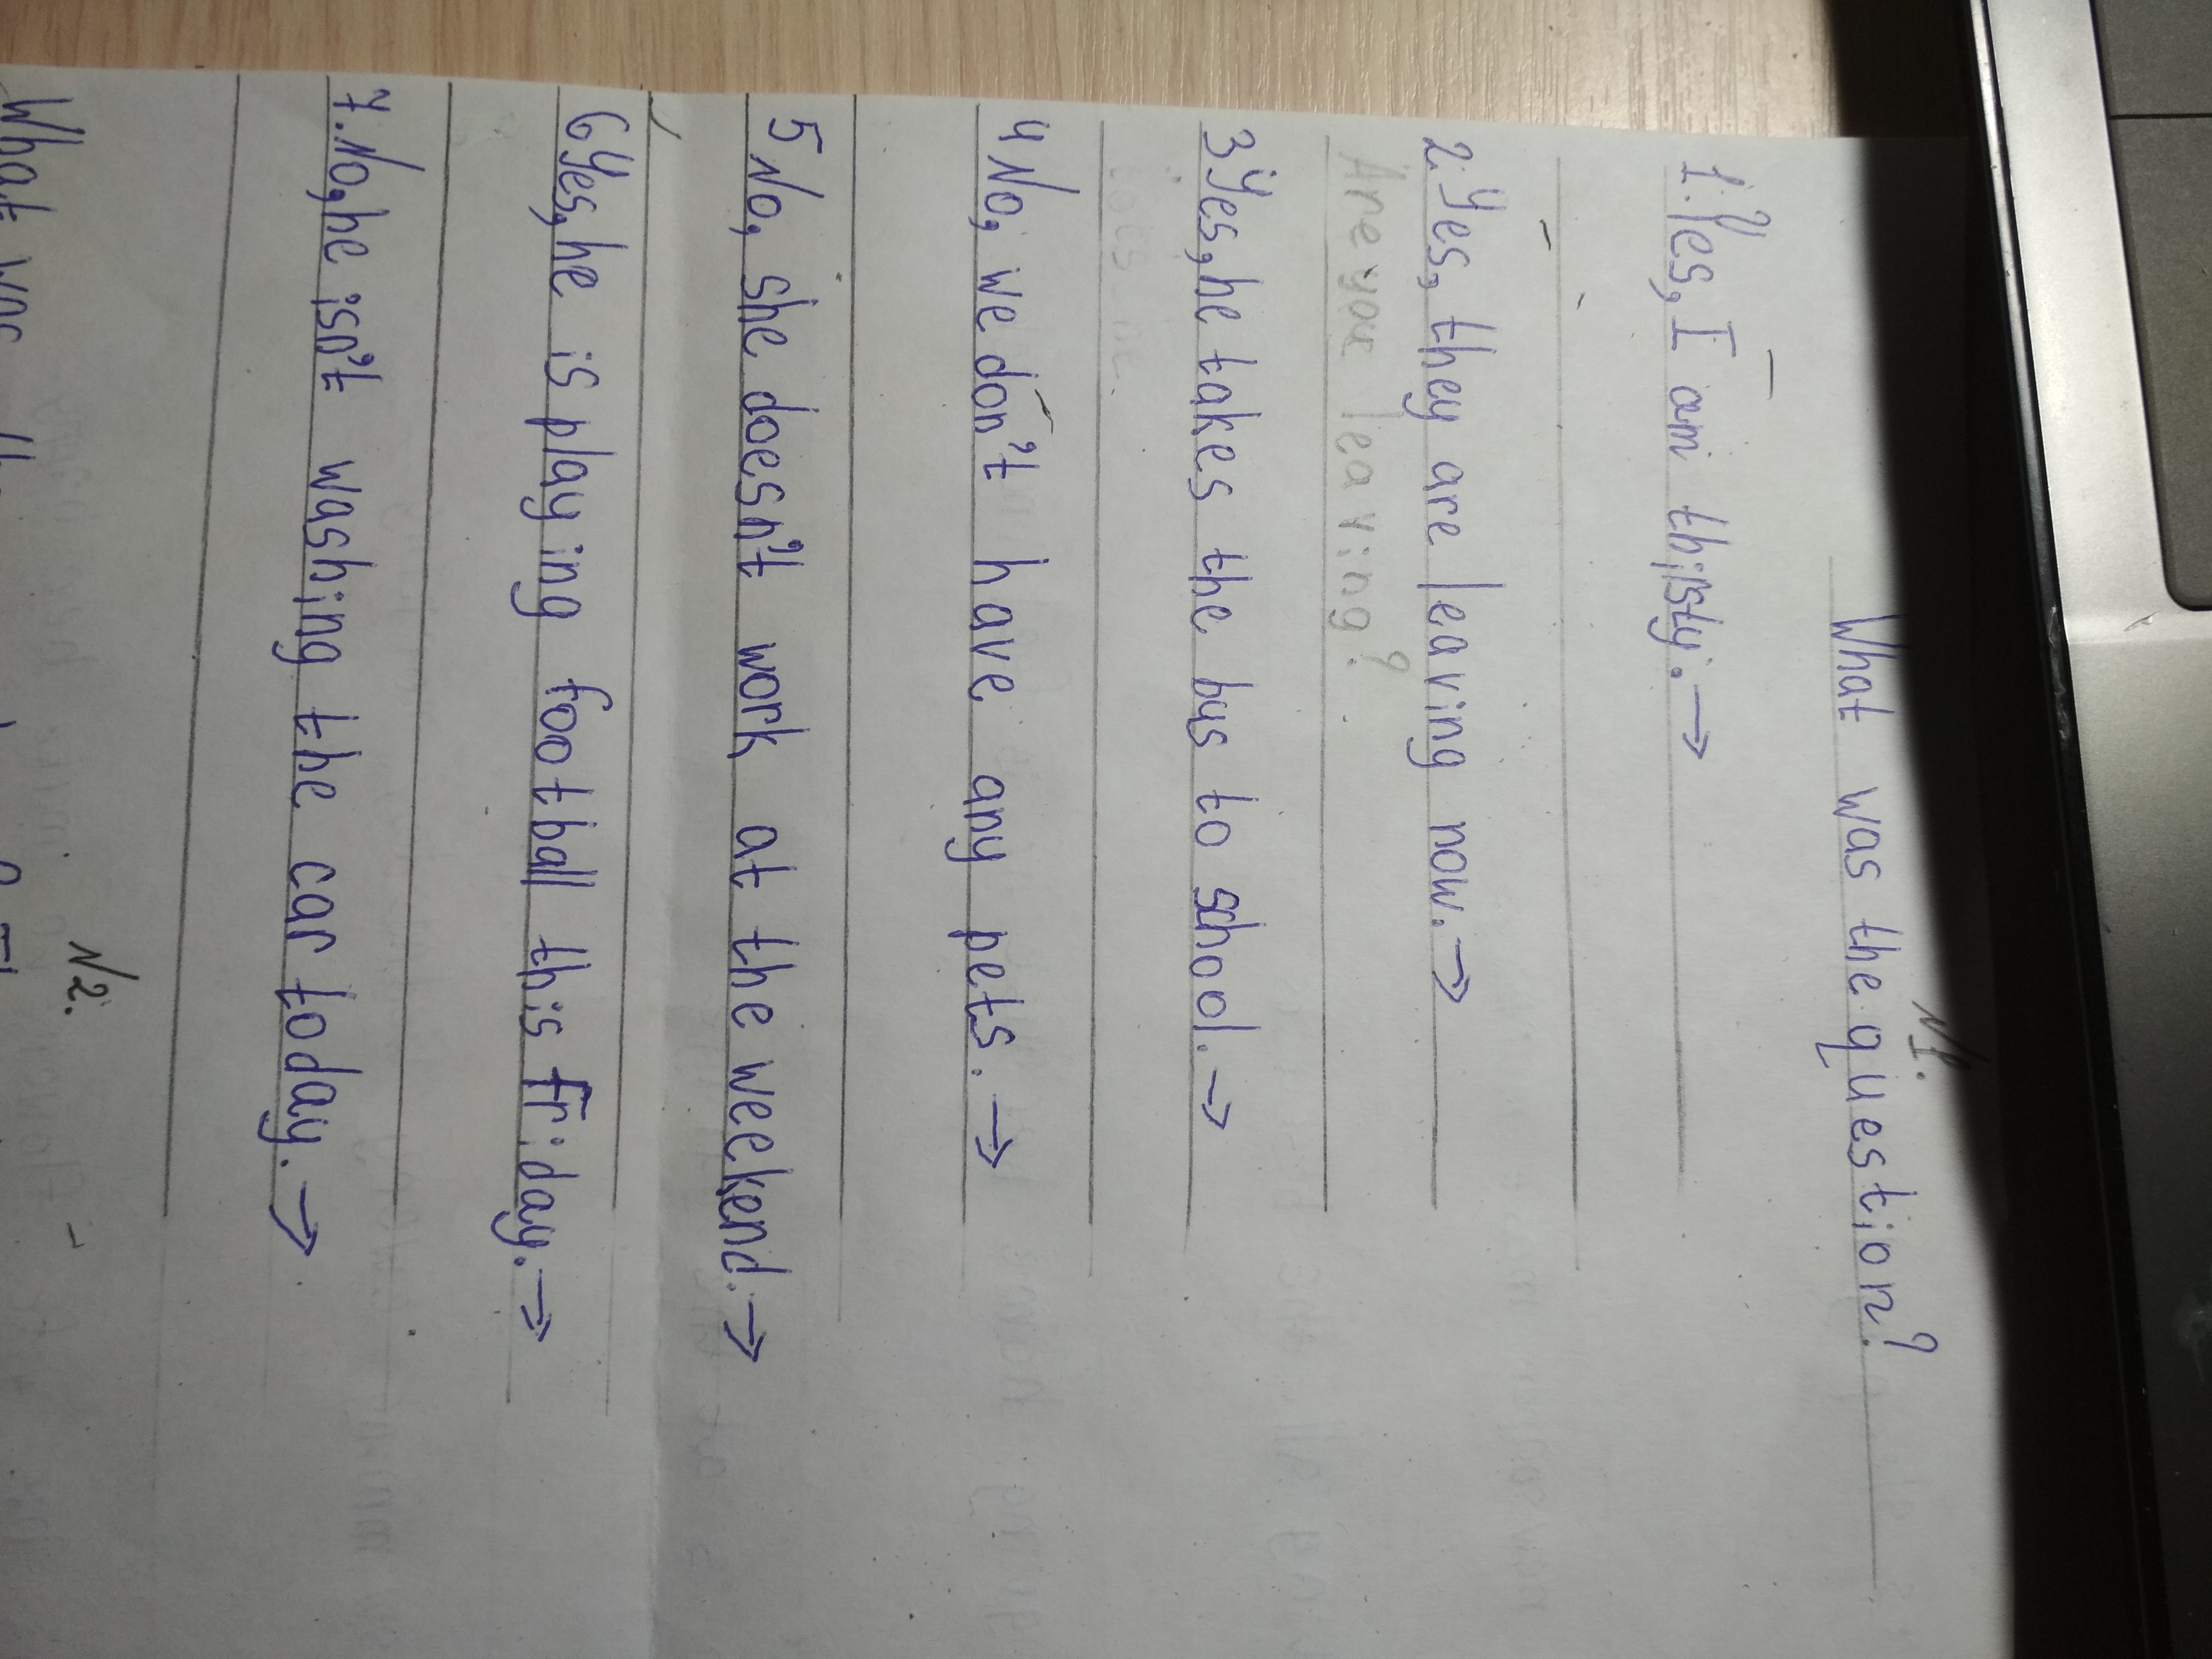 N1.
What was the question?
1. Yes, I am thirsty. →
2. Yes, they are leaving now. →
Are you leaving?
3 Yes, he takes the bus to school. →
4 No, we don't have any pets. →
5 No, she doesn't work at the weekend. →
6 Yes, he is playing football this Friday. →
7. No, he isn't washing the car today. →
N2.
What